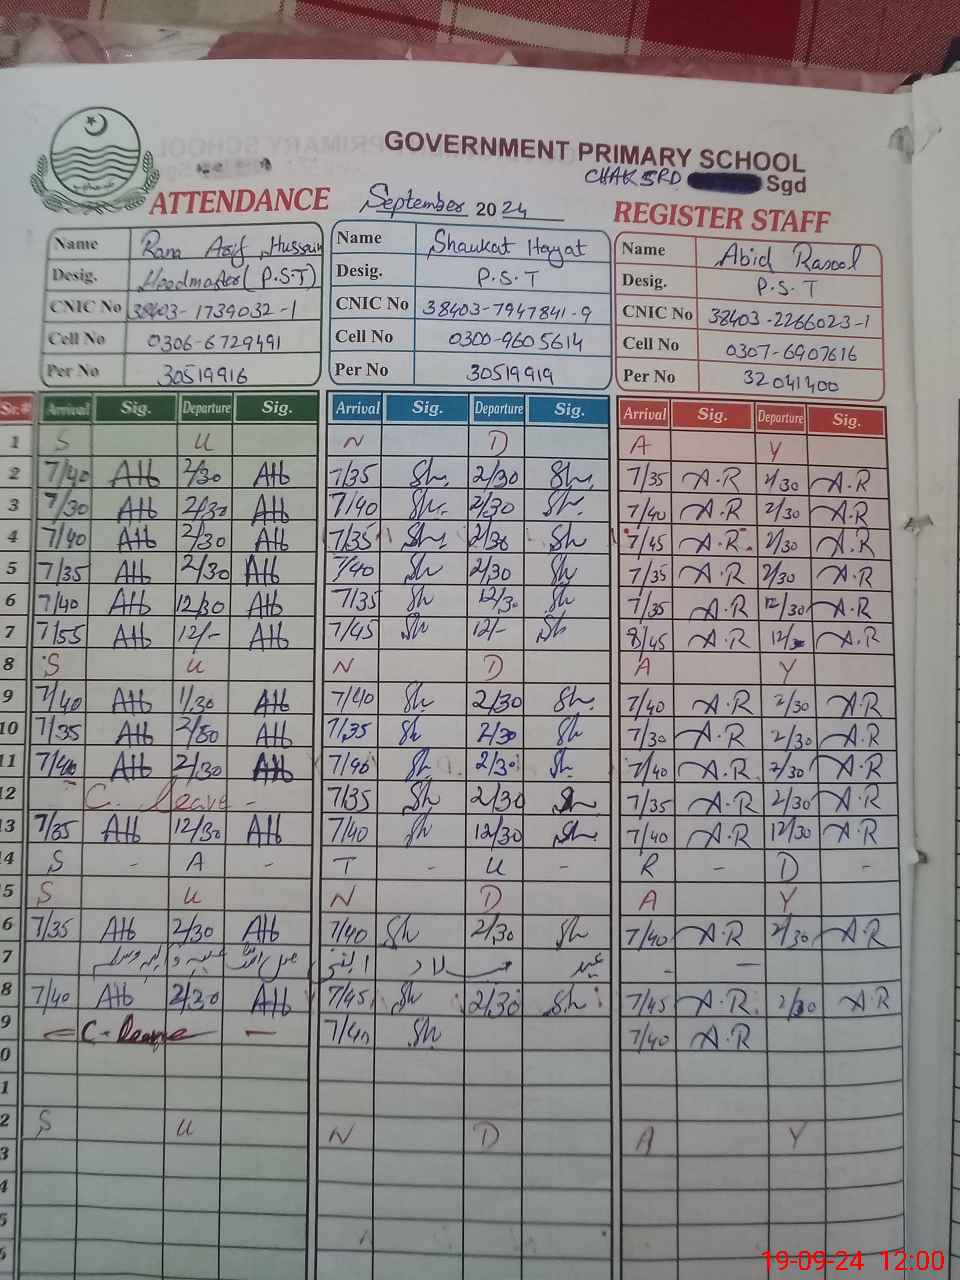 GOVERNMENT PRIMARY SCHOOL
CHAK 5RD Sgd
ATTENDANCE September 2024 REGISTER STAFF
Name Rana Asif Hussain Name Shaukat Hayat Name Abid Rasool
Desig. Headmaster (P.S.T) Desig. P.S.T Desig. P.S.T
CNIC No 38403-1739032-1 CNIC No 38403-7947841-9 CNIC No 38403-2266023-1
Cell No 0306-6729491 Cell No 0300-9605614 Cell No 0307-6907616
Per No 30519916 Per No 30519919 Per No 32041400
Sr.# Arrival Sig. Departure Sig. Arrival Sig. Departure Sig. Arrival Sig. Departure Sig.
1 S U N D A Y
2 7/40 AH 2/30 AH 7/35 Sh. 2/30 Sh. 7/35 A.R 2/30 A.R
3 7/30 AH 2/30 AH 7/40 Sh. 2/30 Sh. 7/40 A.R 2/30 A.R
4 7/40 AH 2/30 AH 7/35 Sh. 2/30 Sh 7/45 A.R 2/30 A.R
5 7/35 AH 2/30 AH 7/40 Sh 2/30 Sh 7/35 A.R 2/30 A.R
6 7/40 AH 12/30 AH 7/35 Sh 12/30 Sh 7/35 A.R 12/30 A.R
7 7/55 AH 12/- AH 7/45 Sh 12/- Sh 8/45 A.R A.R
8 S U N D A Y
9 7/40 AH 1/30 AH 7/40 Sh 2/30 Sh. 7/40 A.R 2/30 A.R
10 7/35 AH 2/30 AH 7/35 Sh 2/30 Sh 7/30 A.R 2/30 A.R
11 7/40 AH 2/30 AH 7/40 Sh 2/30 Sh. 7/40 A.R 2/30 A.R
12 C. leave - 7/35 Sh 2/30 Sh 7/35 A.R 2/30 A.R
13 7/35 AH 12/30 AH 7/40 Sh 12/30 Sh 7/40 A.R 12/30 A.R
4 S - A - T - U - R - D -
5 S U N D A Y
6 7/35 AH 2/30 AH 7/40 Sh 2/30 Sh 7/40 A.R 2/30 A.R
7 عید - -
8 7/40 AH 2/30 AH 7/45 Sh 2/30 Sh 7/45 A.R 2/30 A.R
9 - C. leave - 7/40 Sh 7/40 A.R
0
1
2 S U N D A Y
3
4
5
6
19-09-24 12:00